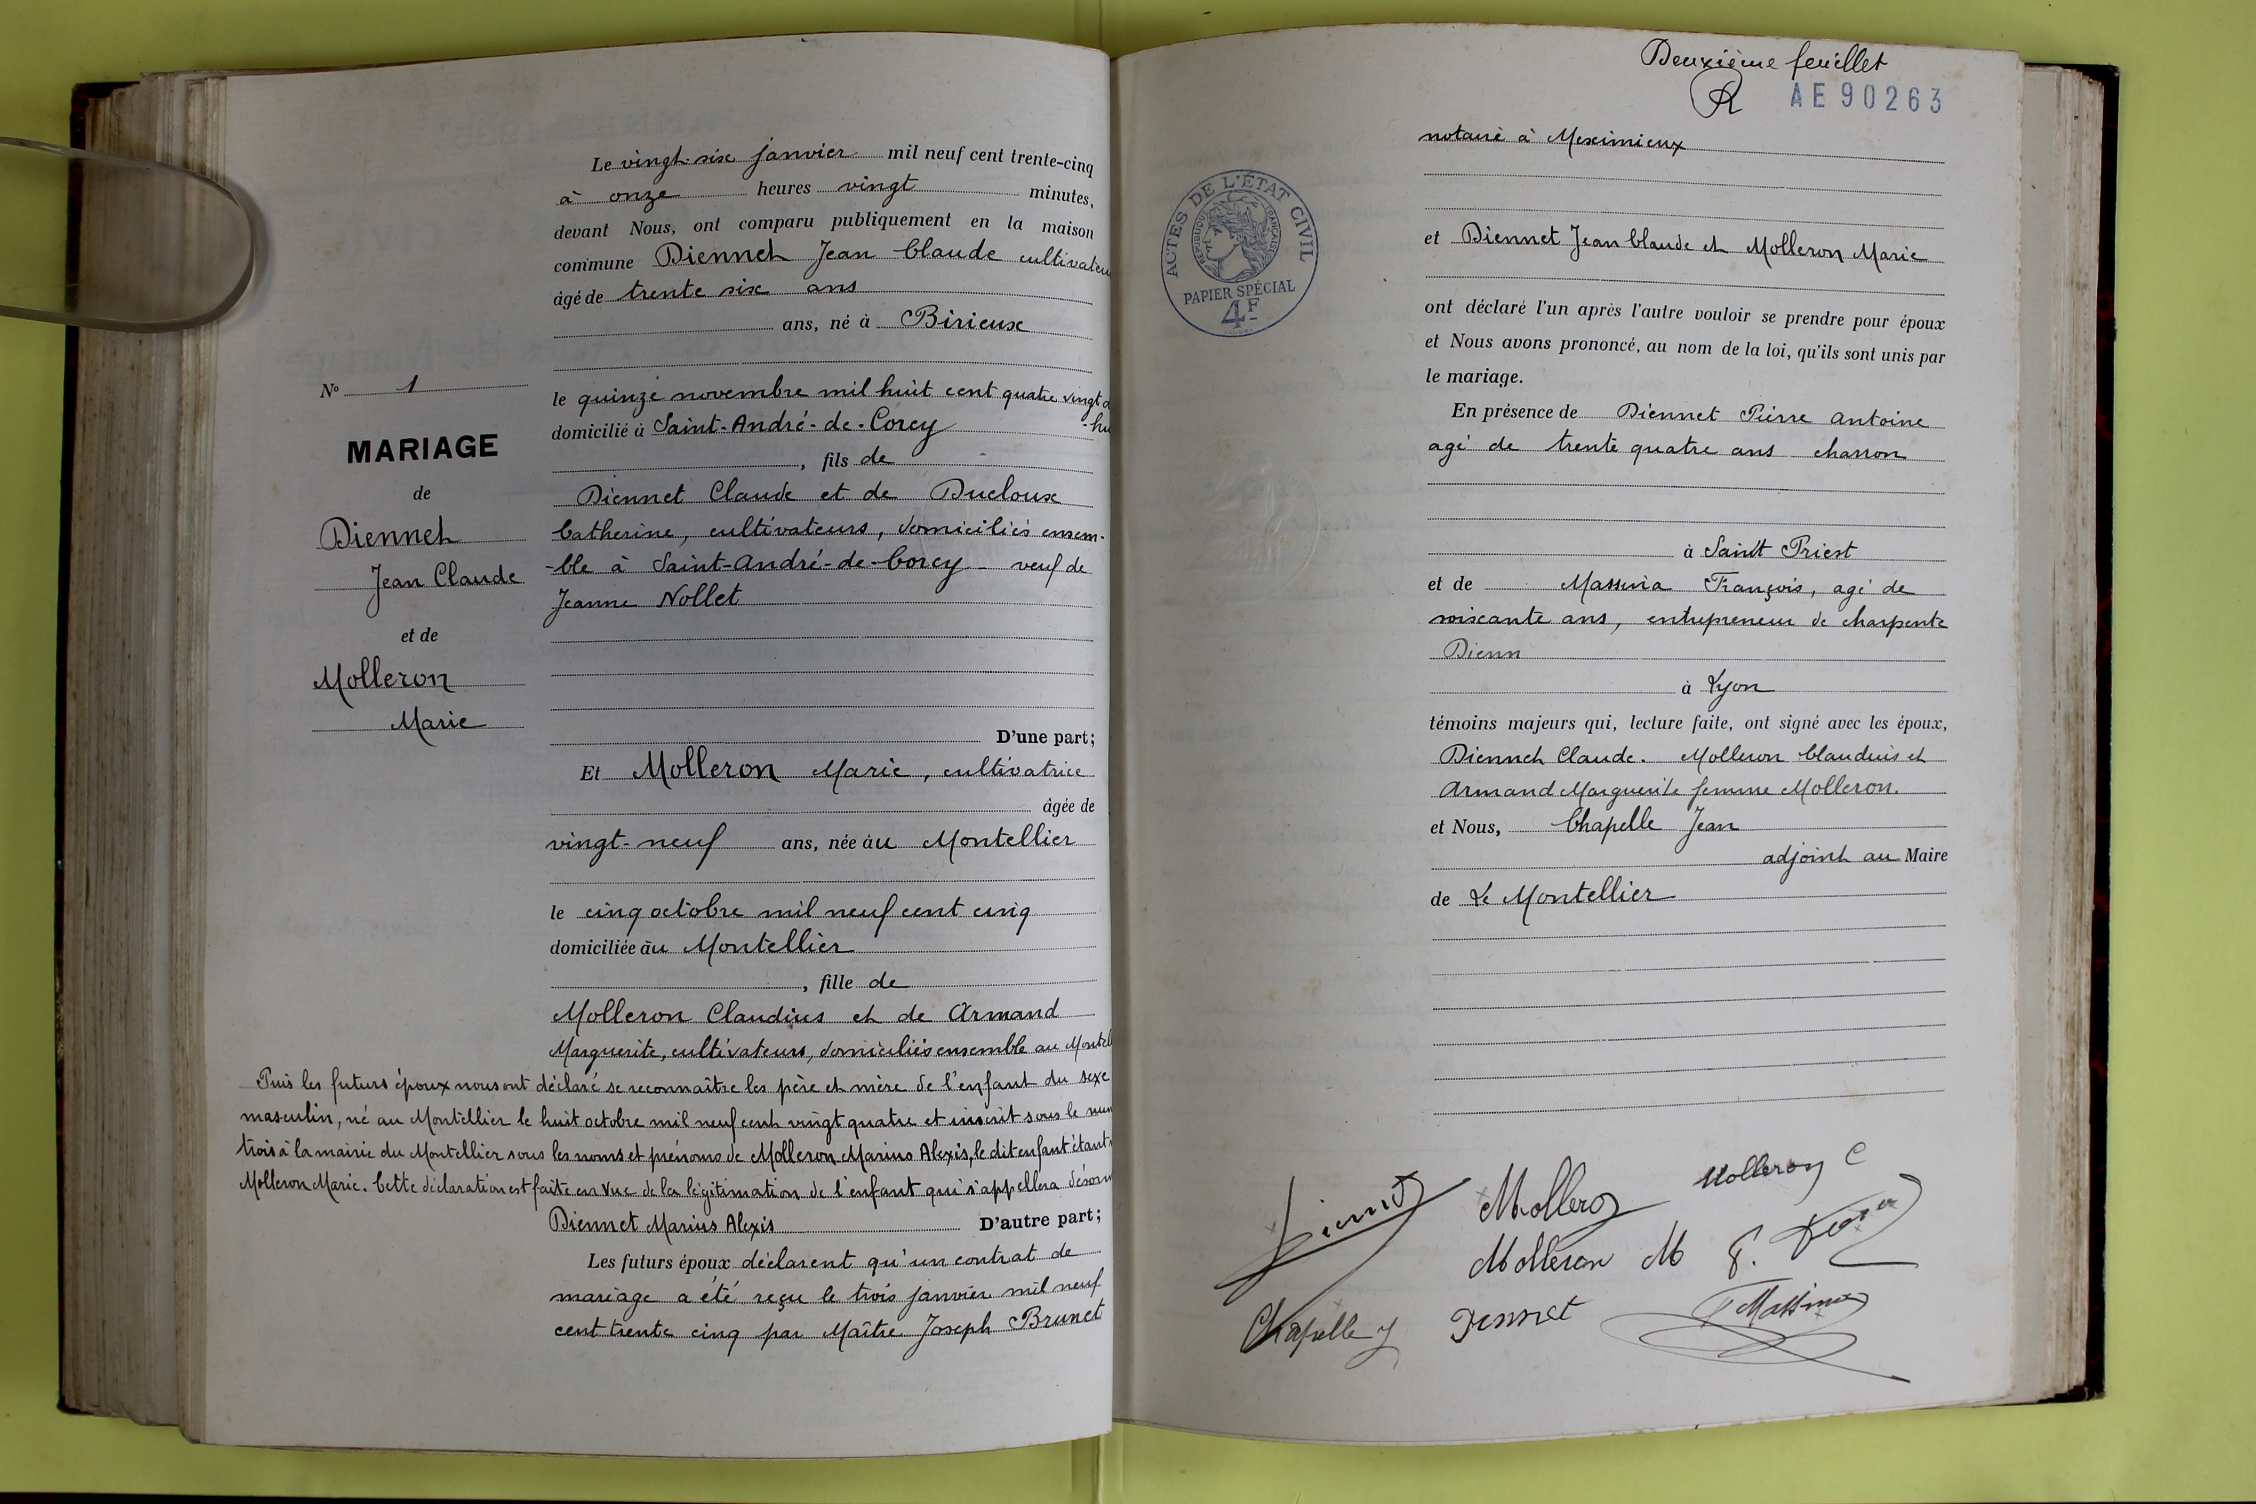 Le vingt-six janvier mil neuf cent trente-cinq
à onze heures vingt minutes,
devant Nous, ont comparu publiquement en la maison
commune Diennet Jean Claude cultivateu
âgé de trente six ans
ans, né à Birieux
le quinze novembre mil huit cent quatre vingt d
-hu
domicilié à Saint-André-de-Corcy
, fils de
Diennet Claude et de Ducloux
Catherine, cultivateurs, domiciliés ensem-
-ble à Saint-André-de-Corcy - veuf de
Jeanne Nollet
D'une part;
Et Molleron Marie, cultivatrice
âgée de
vingt-neuf ans, née au Montellier
le cinq octobre mil neuf cent cinq
domiciliée au Montellier
, fille de
Molleron Claudius et de Armand
Marguerite, cultivateurs, domiciliés ensemble au Montel
Puis les futurs époux nous ont déclaré se reconnaître les père et mère de l'enfant du sexe
masculin, né au Montellier le huit octobre mil neuf cent vingt quatre et inscrit sous le num
trois à la mairie du Montellier sous les noms et prénoms de Molleron Marius Alexis, le dit enfant étant
Molleron Marie. Cette déclaration est faite en vue de la légitimation de l'enfant qui s'appellera désorm
Diennet Marius Alexis D'autre part;
Les futurs époux déclarent qu'un contrat de
mariage a été reçu le trois janvier mil neuf
cent trente cinq par Maître Joseph Brunet
No 1
MARIAGE
de
Diennet
Jean Claude
et de
Molleron
Marie
Deuxième feuillet
AE 90263
notaire à Meximieux
ACTES DE L'ÉTAT CIVIL
REPUBLIQUE FRANÇAISE
PAPIER SPÉCIAL
4F
et Diennet Jean Claude et Molleron Marie
ont déclaré l'un après l'autre vouloir se prendre pour époux
et Nous avons prononcé, au nom de la loi, qu'ils sont unis par
le mariage.
En présence de Diennet Pierre Antoine
agé de trente quatre ans charron
à Saint Priest
et de Massina François, agé de
soixante ans, entrepreneur de charpente
Dienn
à Lyon
témoins majeurs qui, lecture faite, ont signé avec les époux,
Diennet Claude. Molleron Claudius et
Armand Marguerite femme Molleron.
et Nous, Chapelle Jean
adjoint au Maire
de Le Montellier
Molleron C
Molleron M
Chapelle J